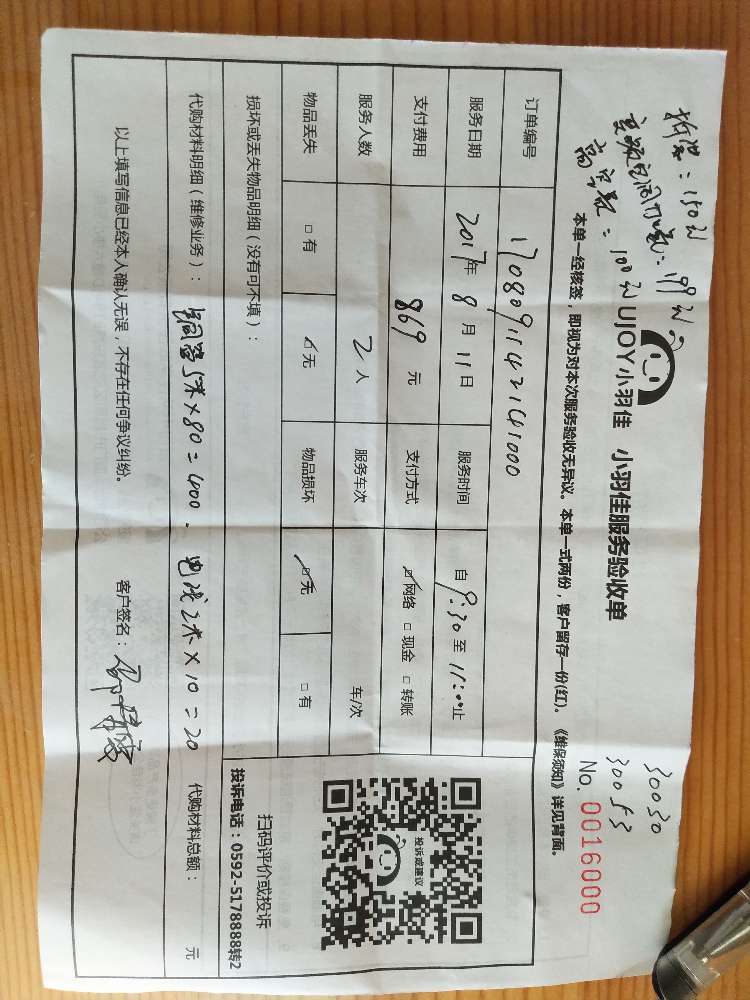 拆装:150元
变频包间加氟:199元
高空费:100元
30030
30053
UJOY小羽佳 小羽佳服务验收单
No. 0016000
本单一经核签，即视为对本次服务验收无异议。本单一式两份，客户留存一份(红)。《维保须知》详见背面。
订单编号 1708091142141000
服务日期 2017年 8 月 11 日 服务时间 自 9:30 至 11:00 止
支付费用 869 元 支付方式 ☑网络 □现金 □转账
服务人数 2 人 服务车次 车/次
物品丢失 □有 ☑无 物品损坏 ☑无 □有
损坏或丢失物品明细（没有可不填）：
代购材料明细（维修业务）： 铜管5米×80=400. 电线2米×10=20 代购材料总额： 元
以上填写信息已经本人确认无误，不存在任何争议纠纷。 客户签名：
投诉或建议
扫码评价或投诉
投诉电话：0592-5178888转2